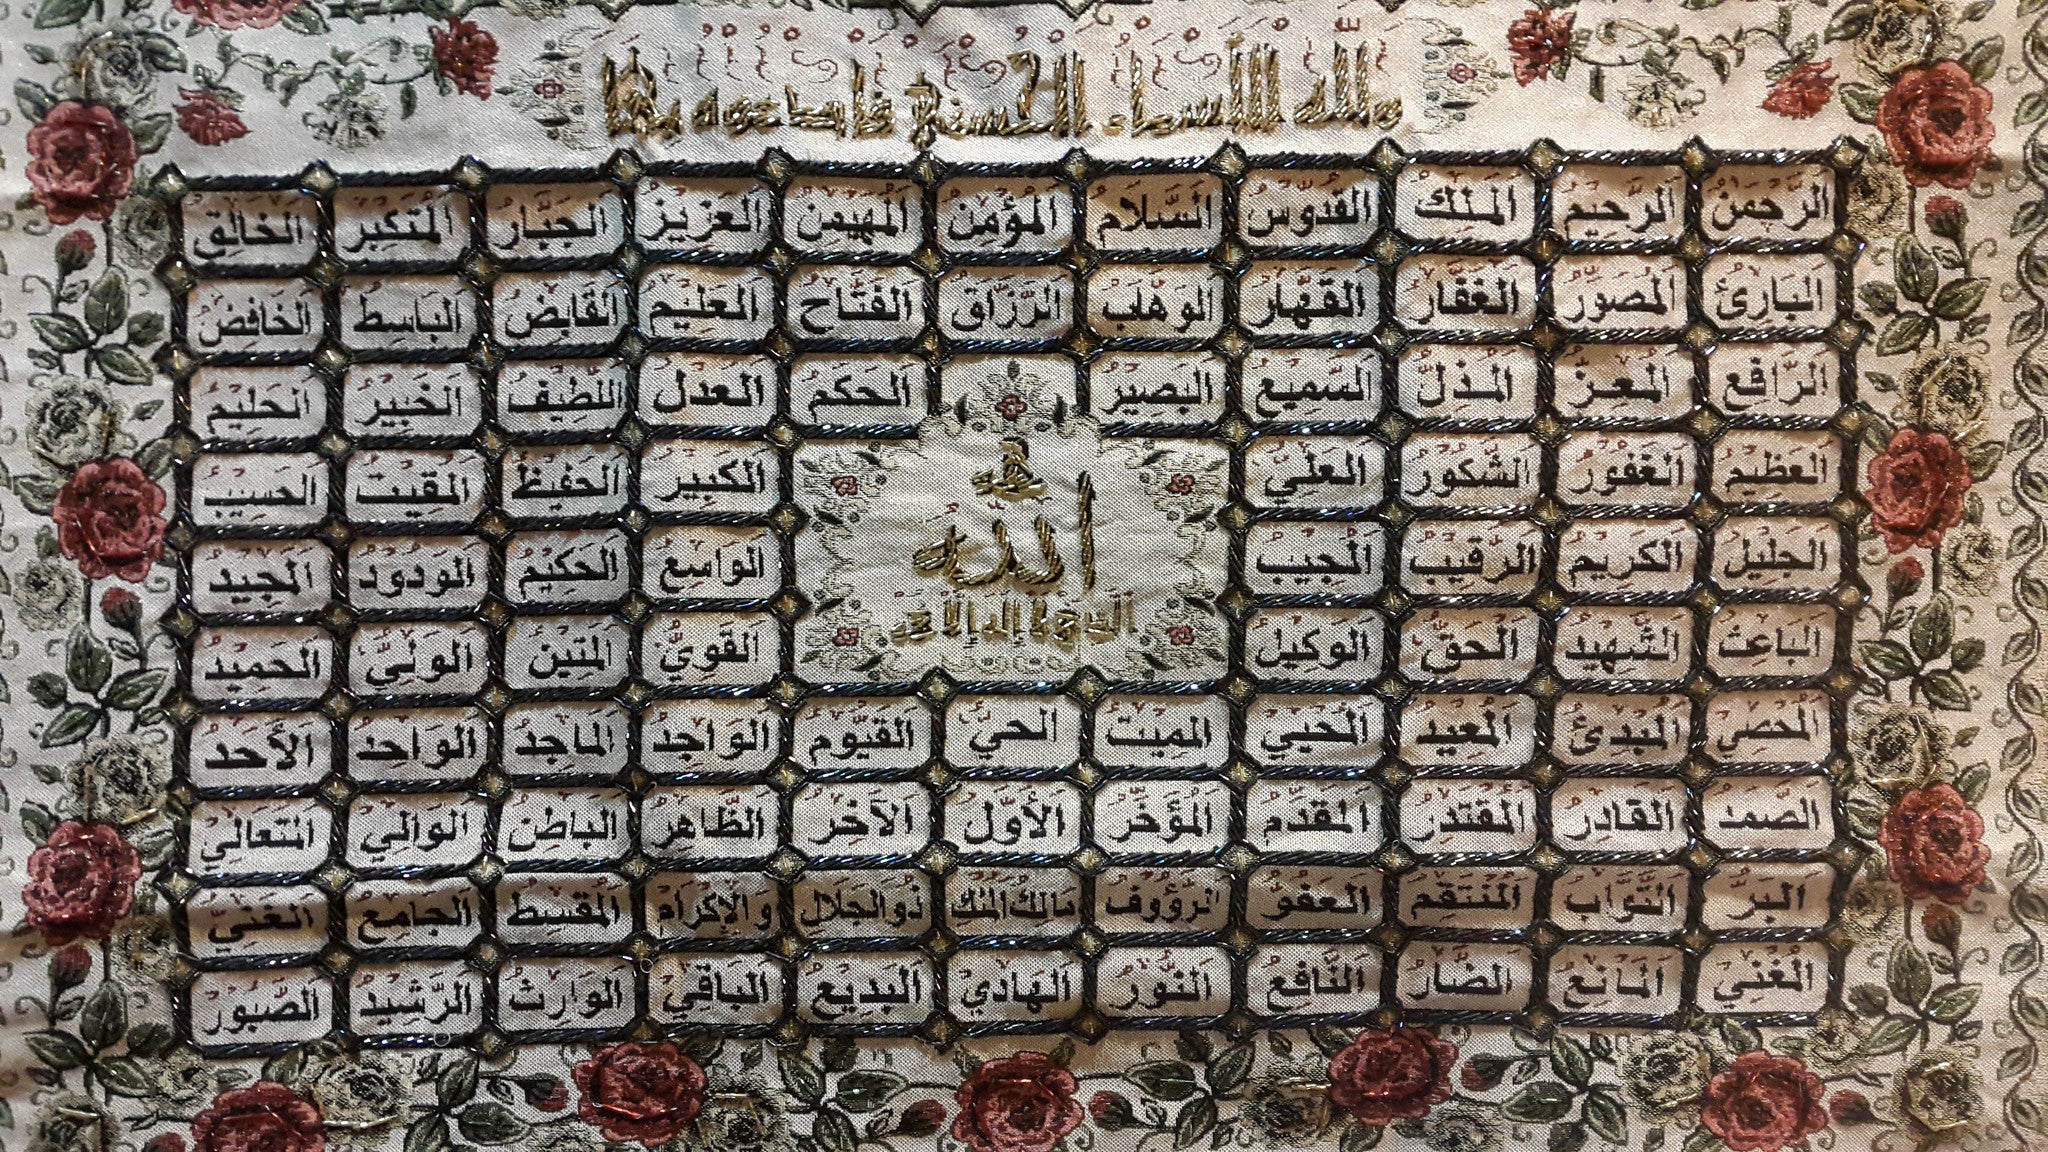 وَلِلَّهِ الْأَسْمَاءُ الْحُسْنَى فَادْعُوهُ بِهَا
اَلرَّحْمٰنُ اَلرَّحِيْمُ اَلْمَلِكُ اَلْقُدُّوْسُ اَلسَّلَامُ اَلْمُؤْمِنُ اَلْمُهَيْمِنُ اَلْعَزِيْزُ اَلْجَبَّارُ اَلْمُتَكَبِّرُ اَلْخَالِقُ
اَلْبَارِئُ اَلْمُصَوِّرُ اَلْغَفَّارُ اَلْقَهَّارُ اَلْوَهَّابُ اَلرَّزَّاقُ اَلْفَتَّاحُ اَلْعَلِيْمُ اَلْقَابِضُ اَلْبَاسِطُ اَلْخَافِضُ
اَلرَّافِعُ اَلْمُعِزُّ اَلْمُذِلُّ اَلسَّمِيْعُ اَلْبَصِيْرُ اَلْحَكَمُ اَلْعَدْلُ اَللَّطِيْفُ اَلْخَبِيْرُ اَلْحَلِيْمُ
اَلْعَظِيْمُ اَلْغَفُوْرُ اَلشَّكُوْرُ اَلْعَلِيُّ اَلْكَبِيْرُ اَلْحَفِيْظُ اَلْمُقِيْتُ اَلْحَسِيْبُ
هو
الله
الذي لا إله إلا هو
اَلْجَلِيْلُ اَلْكَرِيْمُ اَلرَّقِيْبُ اَلْمُجِيْبُ اَلْوَاسِعُ اَلْحَكِيْمُ اَلْوَدُوْدُ اَلْمَجِيْدُ
اَلْبَاعِثُ اَلشَّهِيْدُ اَلْحَقُّ اَلْوَكِيْلُ اَلْقَوِيُّ اَلْمَتِيْنُ اَلْوَلِيُّ اَلْحَمِيْدُ
اَلْمُحْصِيْ اَلْمُبْدِئُ اَلْمُعِيْدُ اَلْمُحْيِيْ اَلْمُمِيْتُ اَلْحَيُّ اَلْقَيُّوْمُ اَلْوَاجِدُ اَلْمَاجِدُ اَلْوَاحِدُ اَلْأَحَدُ
اَلصَّمَدُ اَلْقَادِرُ اَلْمُقْتَدِرُ اَلْمُقَدِّمُ اَلْمُؤَخِّرُ اَلْأَوَّلُ اَلْآخِرُ اَلظَّاهِرُ اَلْبَاطِنُ اَلْوَالِيْ اَلْمُتَعَالِيْ
اَلْبَرُّ اَلتَّوَّابُ اَلْمُنْتَقِمُ اَلْعَفُوُّ اَلرَّؤُوْفُ مَالِكُ الْمُلْكِ ذُو الْجَلَالِ وَالْإِكْرَامِ اَلْمُقْسِطُ اَلْجَامِعُ اَلْغَنِيُّ
اَلْمُغْنِيْ اَلْمَانِعُ اَلضَّارُّ اَلنَّافِعُ اَلنُّوْرُ اَلْهَادِيْ اَلْبَدِيْعُ اَلْبَاقِيْ اَلْوَارِثُ اَلرَّشِيْدُ اَلصَّبُوْرُ